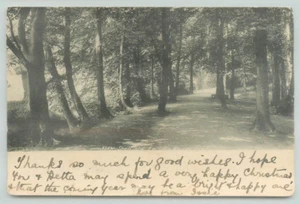 Thanks so much for good wishes. I hope
You & Hetta may spend a very happy Christmas
& that the coming year may be a bright & happy one